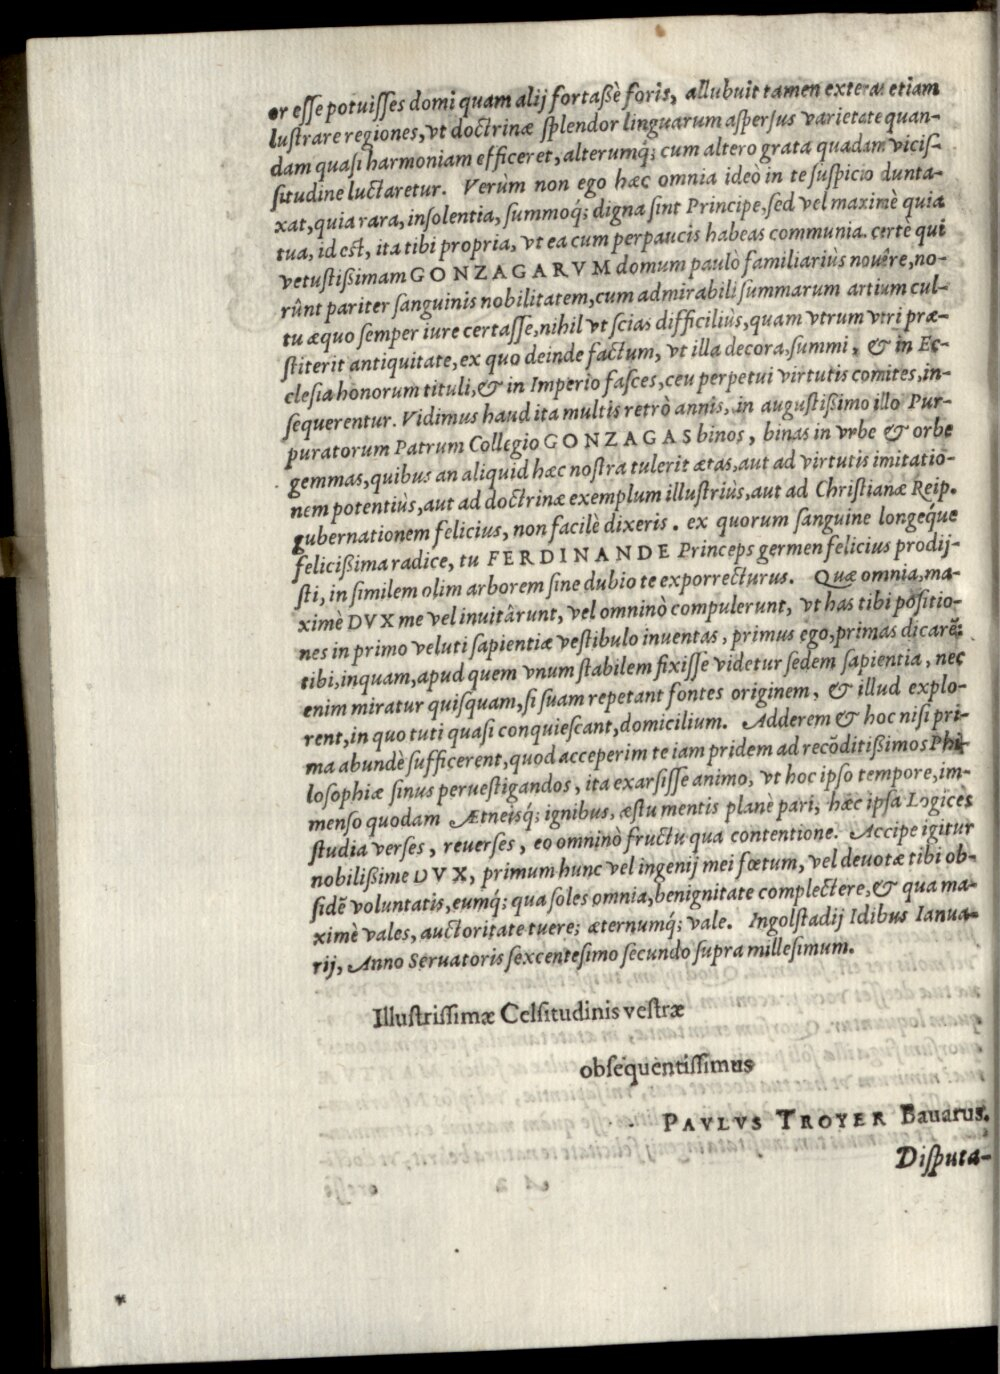 or esse potuisses domi quam alij fortaßè foris, allubuit tamen exteras etiam
lustrare regiones, vt doctrinæ splendor linguarum aspersus varietate quan-
dam quasi harmoniam efficeret, alterumq́; cum altero grata quadam vicis-
situdine luctaretur. Verùm non ego hæc omnia ideò in te suspicio dunta-
xat, quia rara, insolentia, summoq́; digna sint Principe, sed vel maximè quia
tua, id est, ita tibi propria, vt ea cum perpaucis habeas communia. certè qui
vetustißimam GONZAGARVM domum paulò familiariùs novêre, no-
rûnt pariter sanguinis nobilitatem, cum admirabili summarum artium cul-
tu æquo semper iure certasse, nihil vt scias difficiliùs, quam vtrum vtri præ-
stiterit antiquitate, ex quo deinde factum, vt illa decora, summi, & in Ec-
clesia honorum tituli, & in Imperio fasces, ceu perpetui virtutis comites, in-
sequerentur. Vidimus haud ita multis retrò annis, in augustißimo illo Pur-
puratorum Patrum Collegio GONZAGAS binos, binas in vrbe & orbe
gemmas, quibus an aliquid hæc nostra tulerit ætas, aut ad virtutis imitatio-
nem potentiùs, aut ad doctrinæ exemplum illustriùs, aut ad Christianæ Reip.
gubernationem felicius, non facilè dixeris. ex quorum sanguine longeq́ue
felicißima radice, tu FERDINANDE Princeps germen felicius prodij-
sti, in similem olim arborem sine dubio te exporrecturus. Quæ omnia, ma-
ximè DVX me vel inuitârunt, vel omninò compulerunt, vt has tibi positio-
nes in primo veluti sapientiæ vestibulo inuentas, primus ego, primas dicarẽ:
tibi, inquam, apud quem vnum stabilem fixisse videtur sedem sapientia, nec
enim miratur quisquam, si suam repetant fontes originem, & illud explo-
rent, in quo tuti quasi conquiescant, domicilium. Adderem & hoc nisi pri-
ma abundè sufficerent, quod acceperim te iam pridem ad recõditißimos Phi-
losophiæ sinus peruestigandos, ita exarsisse animo, vt hoc ipso tempore, im-
menso quodam Ætneisq́; ignibus, æstu mentis planè pari, hæc ipsa Logices
studia verses, reuerses, eo omninò fructu qua contentione. Accipe igitur
nobilißime DVX, primum hunc vel ingenij mei fœtum, vel deuotæ tibi ob-
sidẽ voluntatis, eumq́; qua soles omnia, benignitate complectere, & qua ma-
ximè vales, auctoritate tuere; æternumq́; vale. Ingolstadij Idibus Ianua-
rij, Anno Seruatoris sexcentesimo secundo supra millesimum.
Illustrissimæ Celsitudinis vestræ
obsequentissimus
PAVLVS TROYER Bauarus.
Disputa-